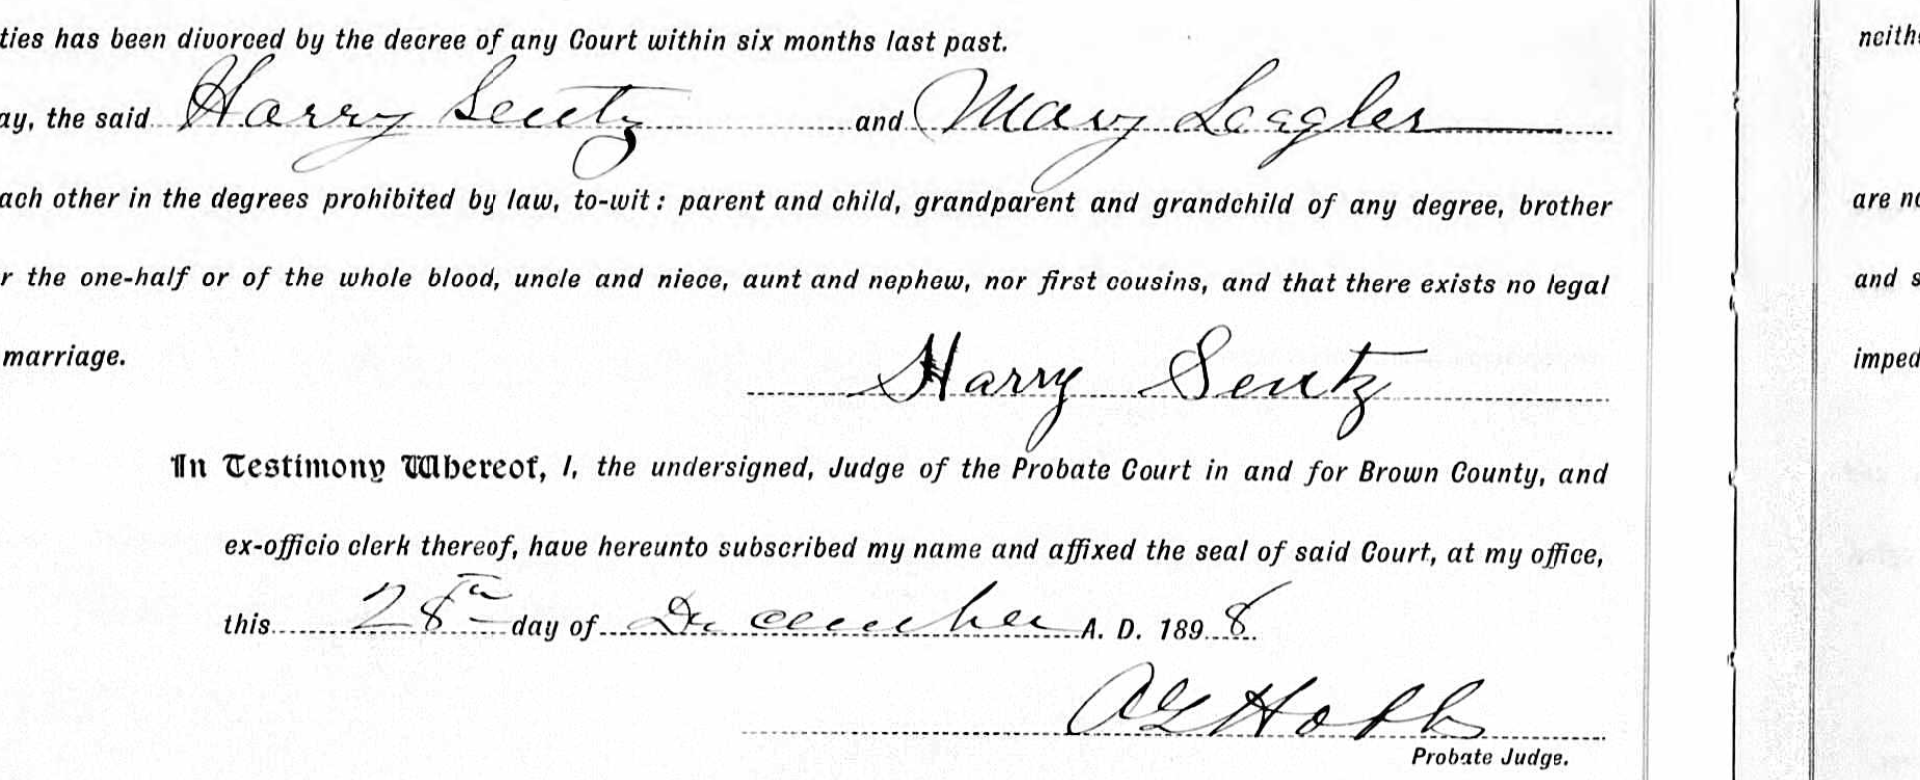 ties has been divorced by the decree of any Court within six months last past.
ay, the said Harry Sentz and Mary Laagler
ach other in the degrees prohibited by law, to-wit: parent and child, grandparent and grandchild of any degree, brother
r the one-half or of the whole blood, uncle and niece, aunt and nephew, nor first cousins, and that there exists no legal
marriage.
Harry Sentz
In Testimony Whereof, I, the undersigned, Judge of the Probate Court in and for Brown County, and
ex-officio clerk thereof, have hereunto subscribed my name and affixed the seal of said Court, at my office,
this 28th day of December A. D. 1898
Probate Judge.
neith
are no
and s
imped